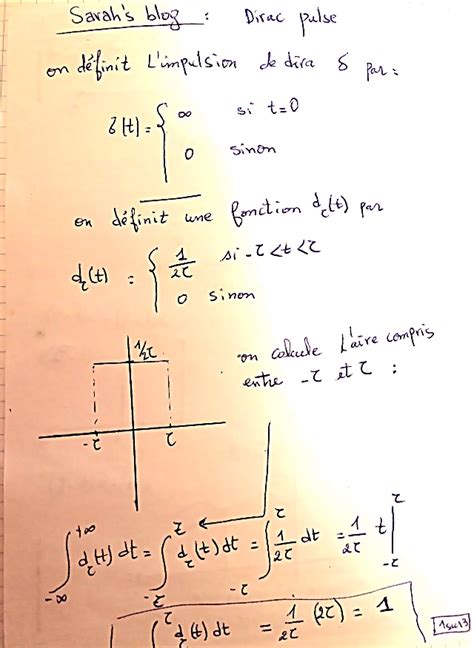 Sarah's blog : Dirac pulse
on définit L'impulsion de dira δ par :
δ(t) = { ∞ si t=0
0 sinon
on définit une fonction d_τ(t) par
d_τ(t) = { 1/2τ si -τ < t < τ
0 sinon
1/2τ
-τ τ
on calcule L'aire compris
entre -τ et τ :
∫_{-∞}^{+∞} d_τ(t) dt = ∫_{-τ}^{τ} d_τ(t) dt = ∫_{-τ}^{τ} 1/2τ dt = 1/2τ t |_{-τ}^{τ}
∫^{τ} d_τ(t) dt = 1/2τ (2τ) = 1
1sur3